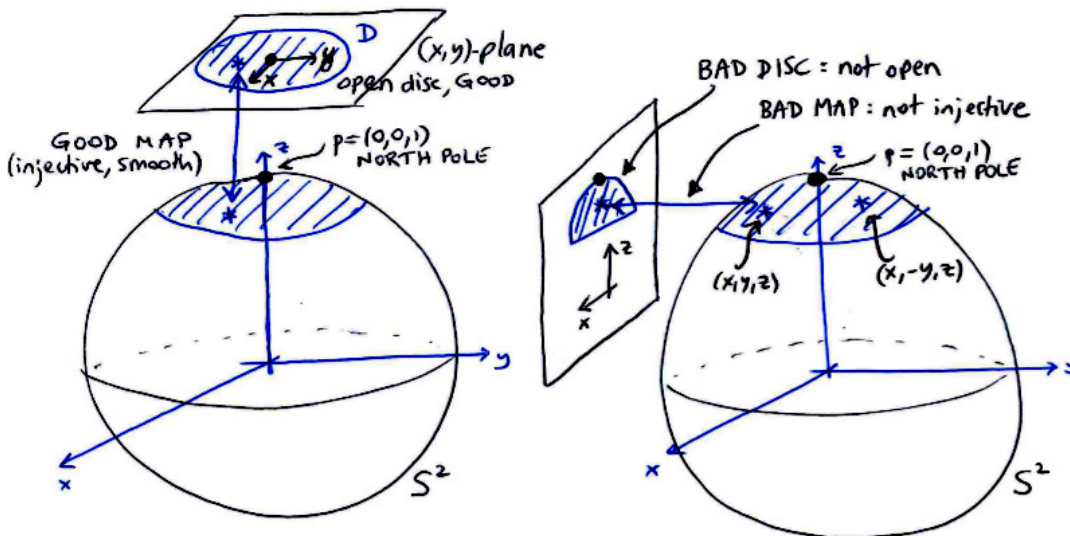 D
(x,y)-plane
y
x
open disc, GOOD
GOOD MAP
(injective, smooth)
z
p=(0,0,1)
NORTH POLE
y
x
S²
BAD DISC : not open
BAD MAP : not injective
z
x
z
p=(0,0,1)
NORTH POLE
(x,y,z)
(x,-y,z)
x
S²